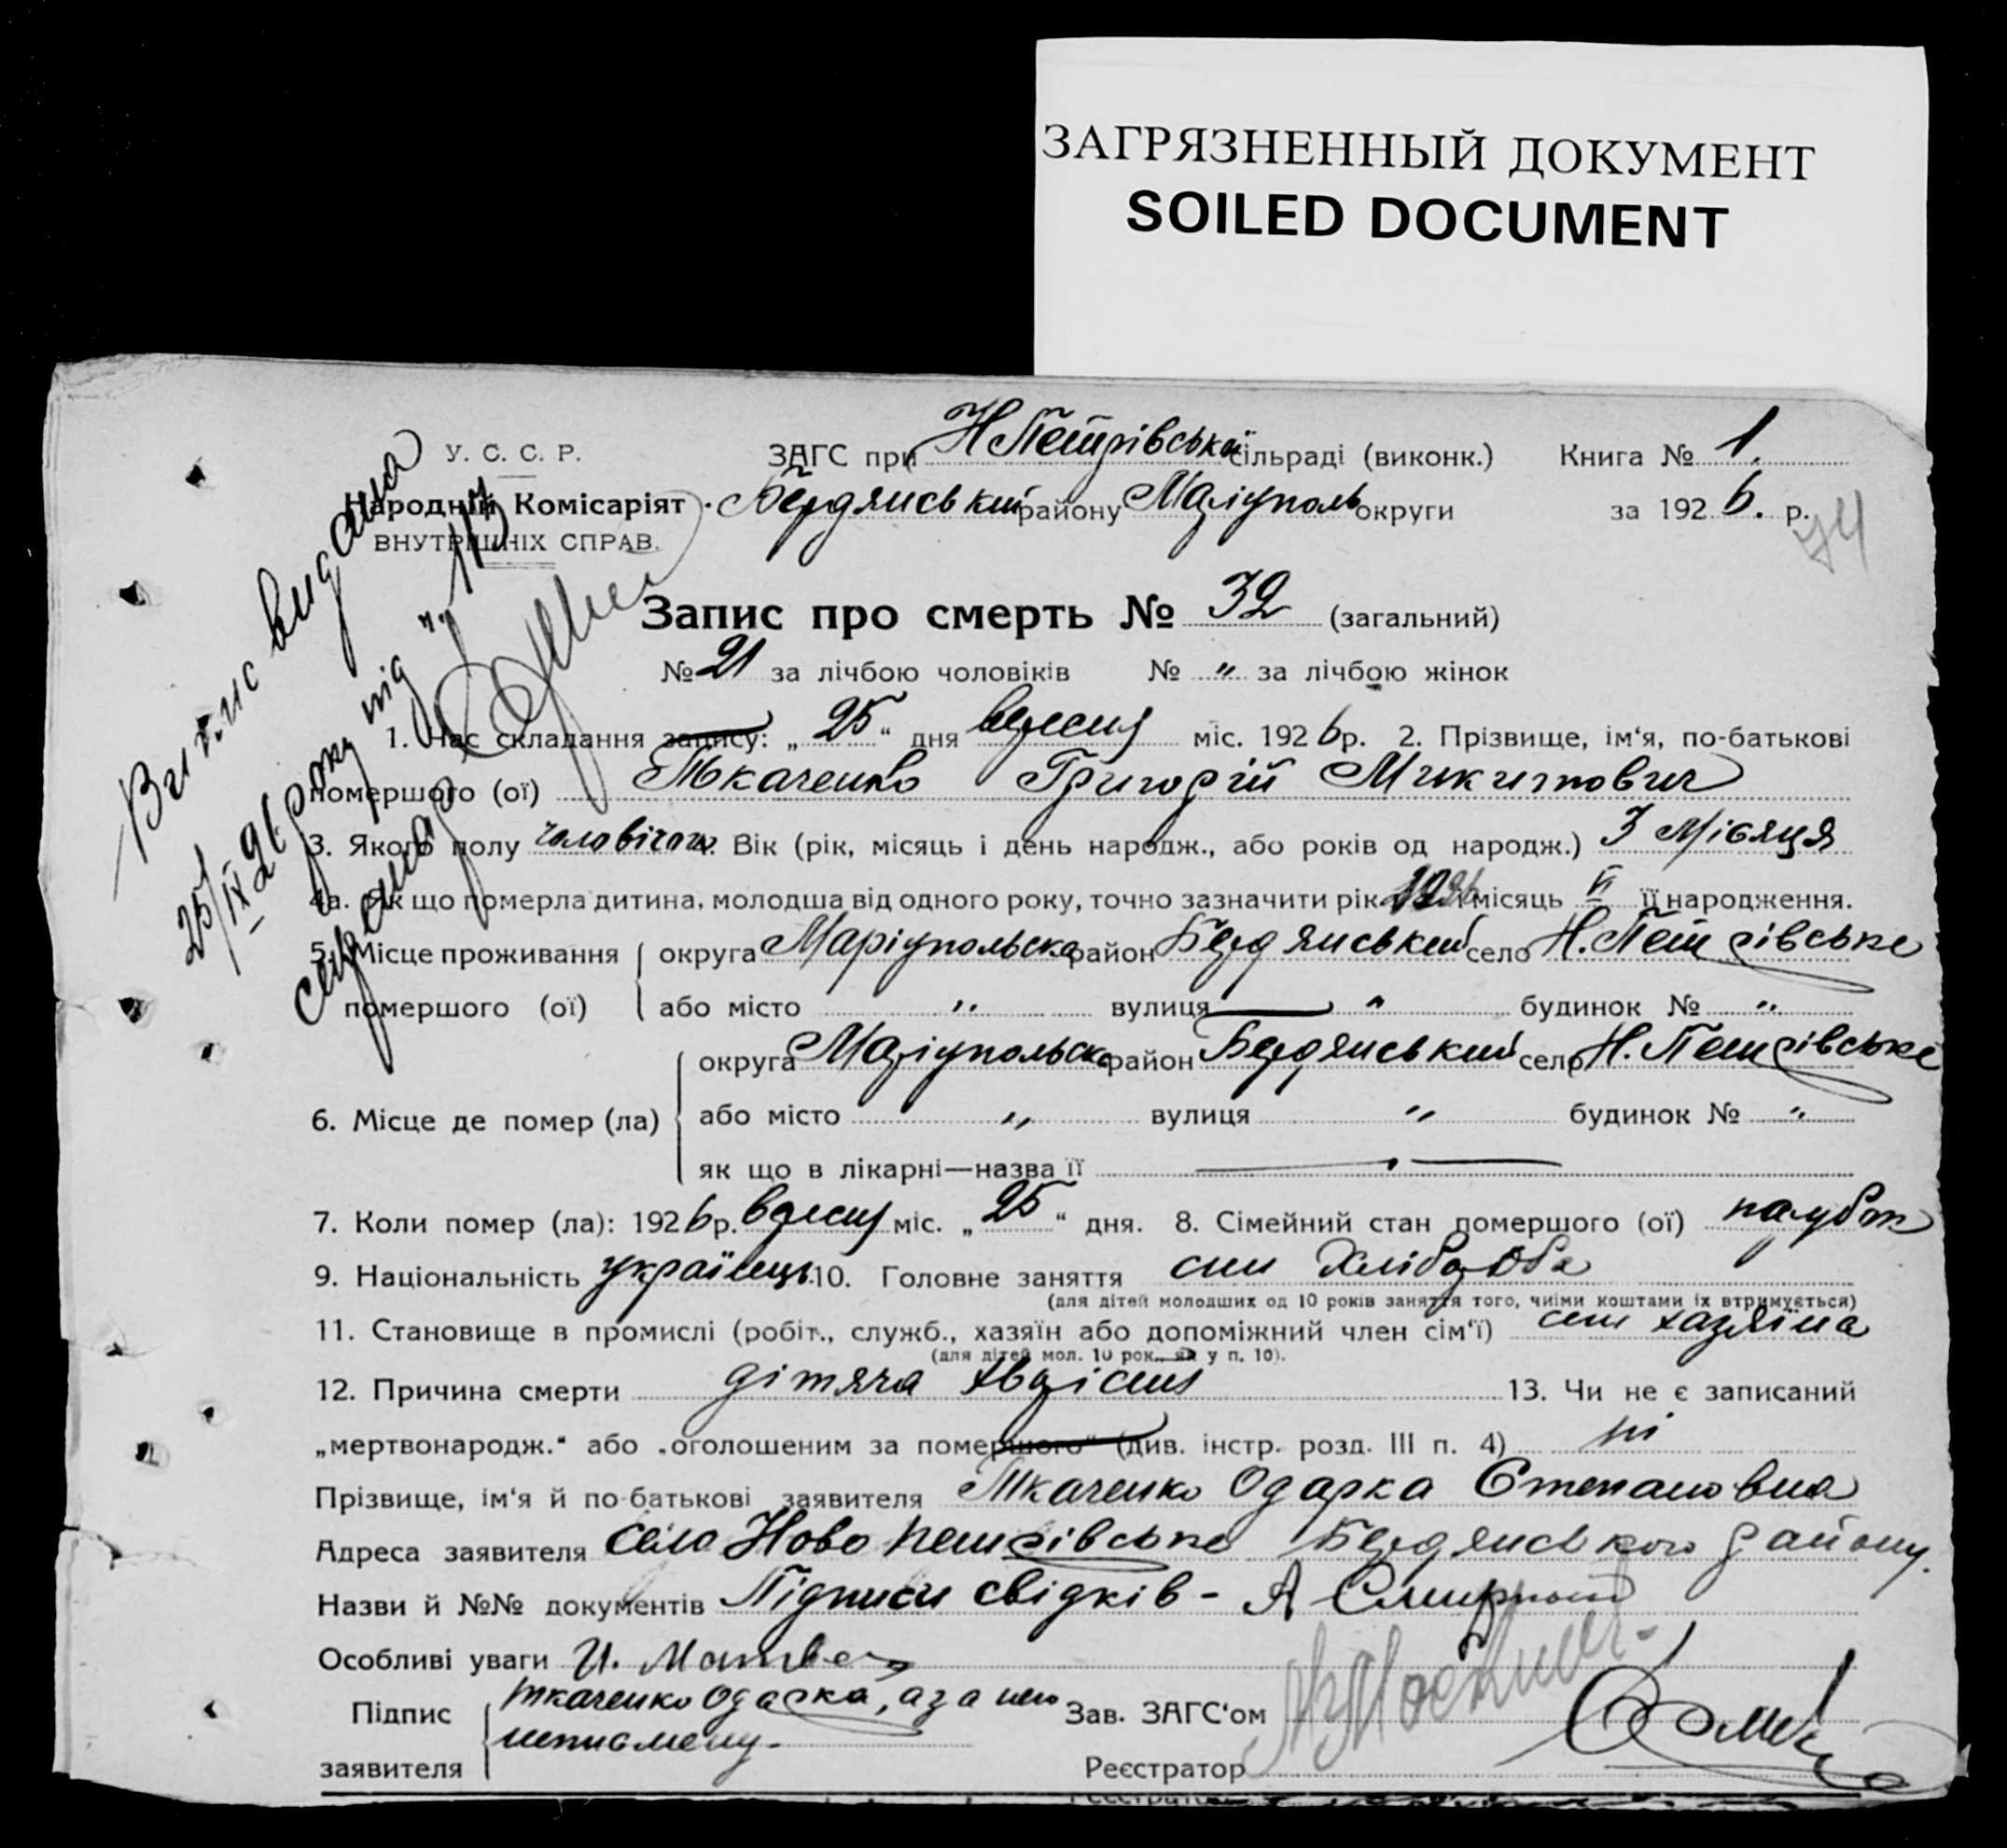 ЗАГРЯЗНЕННЫЙ ДОКУМЕНТ
SOILED DOCUMENT
У. С. С. Р.
Народній Комісаріят
ВНУТРІШНІХ СПРАВ.
ЗАГС при Н Петрівській сільраді (виконк.) Книга № 1.
Бердянський району Маріуполь округи за 1926. р.
74
Запис про смерть № 32 (загальний)
№ 21 за лічбою чоловіків № " за лічбою жінок
Витис видана
25/IX 26 року під н. 113
1. Час складання запису: „ 25 “ дня вересня міс. 1926 р. 2. Прізвище, ім‘я, по-батькові
помершого (ої) Ткаченко Григорій Микитович
3. Якого полу чоловічого 4. Вік (рік, місяць і день народж., або років од народж.) 3 місяця
4а. Як що померла дитина, молодша від одного року, точно зазначити рік 1926 і місяць VI її народження.
5. Місце проживання округа Маріупольська район Бердянський село Н. Петрівське
помершого (ої) або місто " вулиця " будинок № "
округа Маріупольська район Бердянський село Н. Петрівське
6. Місце де помер (ла) або місто " вулиця " будинок № "
як що в лікарні—назва її
7. Коли помер (ла): 1926 р. вересня міс. „ 25 “ дня. 8. Сімейний стан помершого (ої) парубок
9. Національність українець 10. Головне заняття син хлібороба
(для дітей молодших од 10 років заняття того, чиїми коштами їх втримується)
11. Становище в промислі (робіт., служб., хазяїн або допоміжний член сім‘ї) син хазяїна
(для дітей мол. 10 рок. як у п. 10).
12. Причина смерти дітяча хворість 13. Чи не є записаний
„мертвонародж.“ або „оголошеним за помершого“ (див. інстр. розд. III п. 4) ні
Прізвище, ім‘я й по-батькові заявителя Ткаченко Одарка Степановна
Адреса заявителя село Ново Петрівське Бердянського району.
Назви й №№ документів Підписи свідків - А
Особливі уваги И.
Підпис Ткаченко Одарка, а за нею Зав. ЗАГС‘ом
неписмену
заявителя Реєстратор